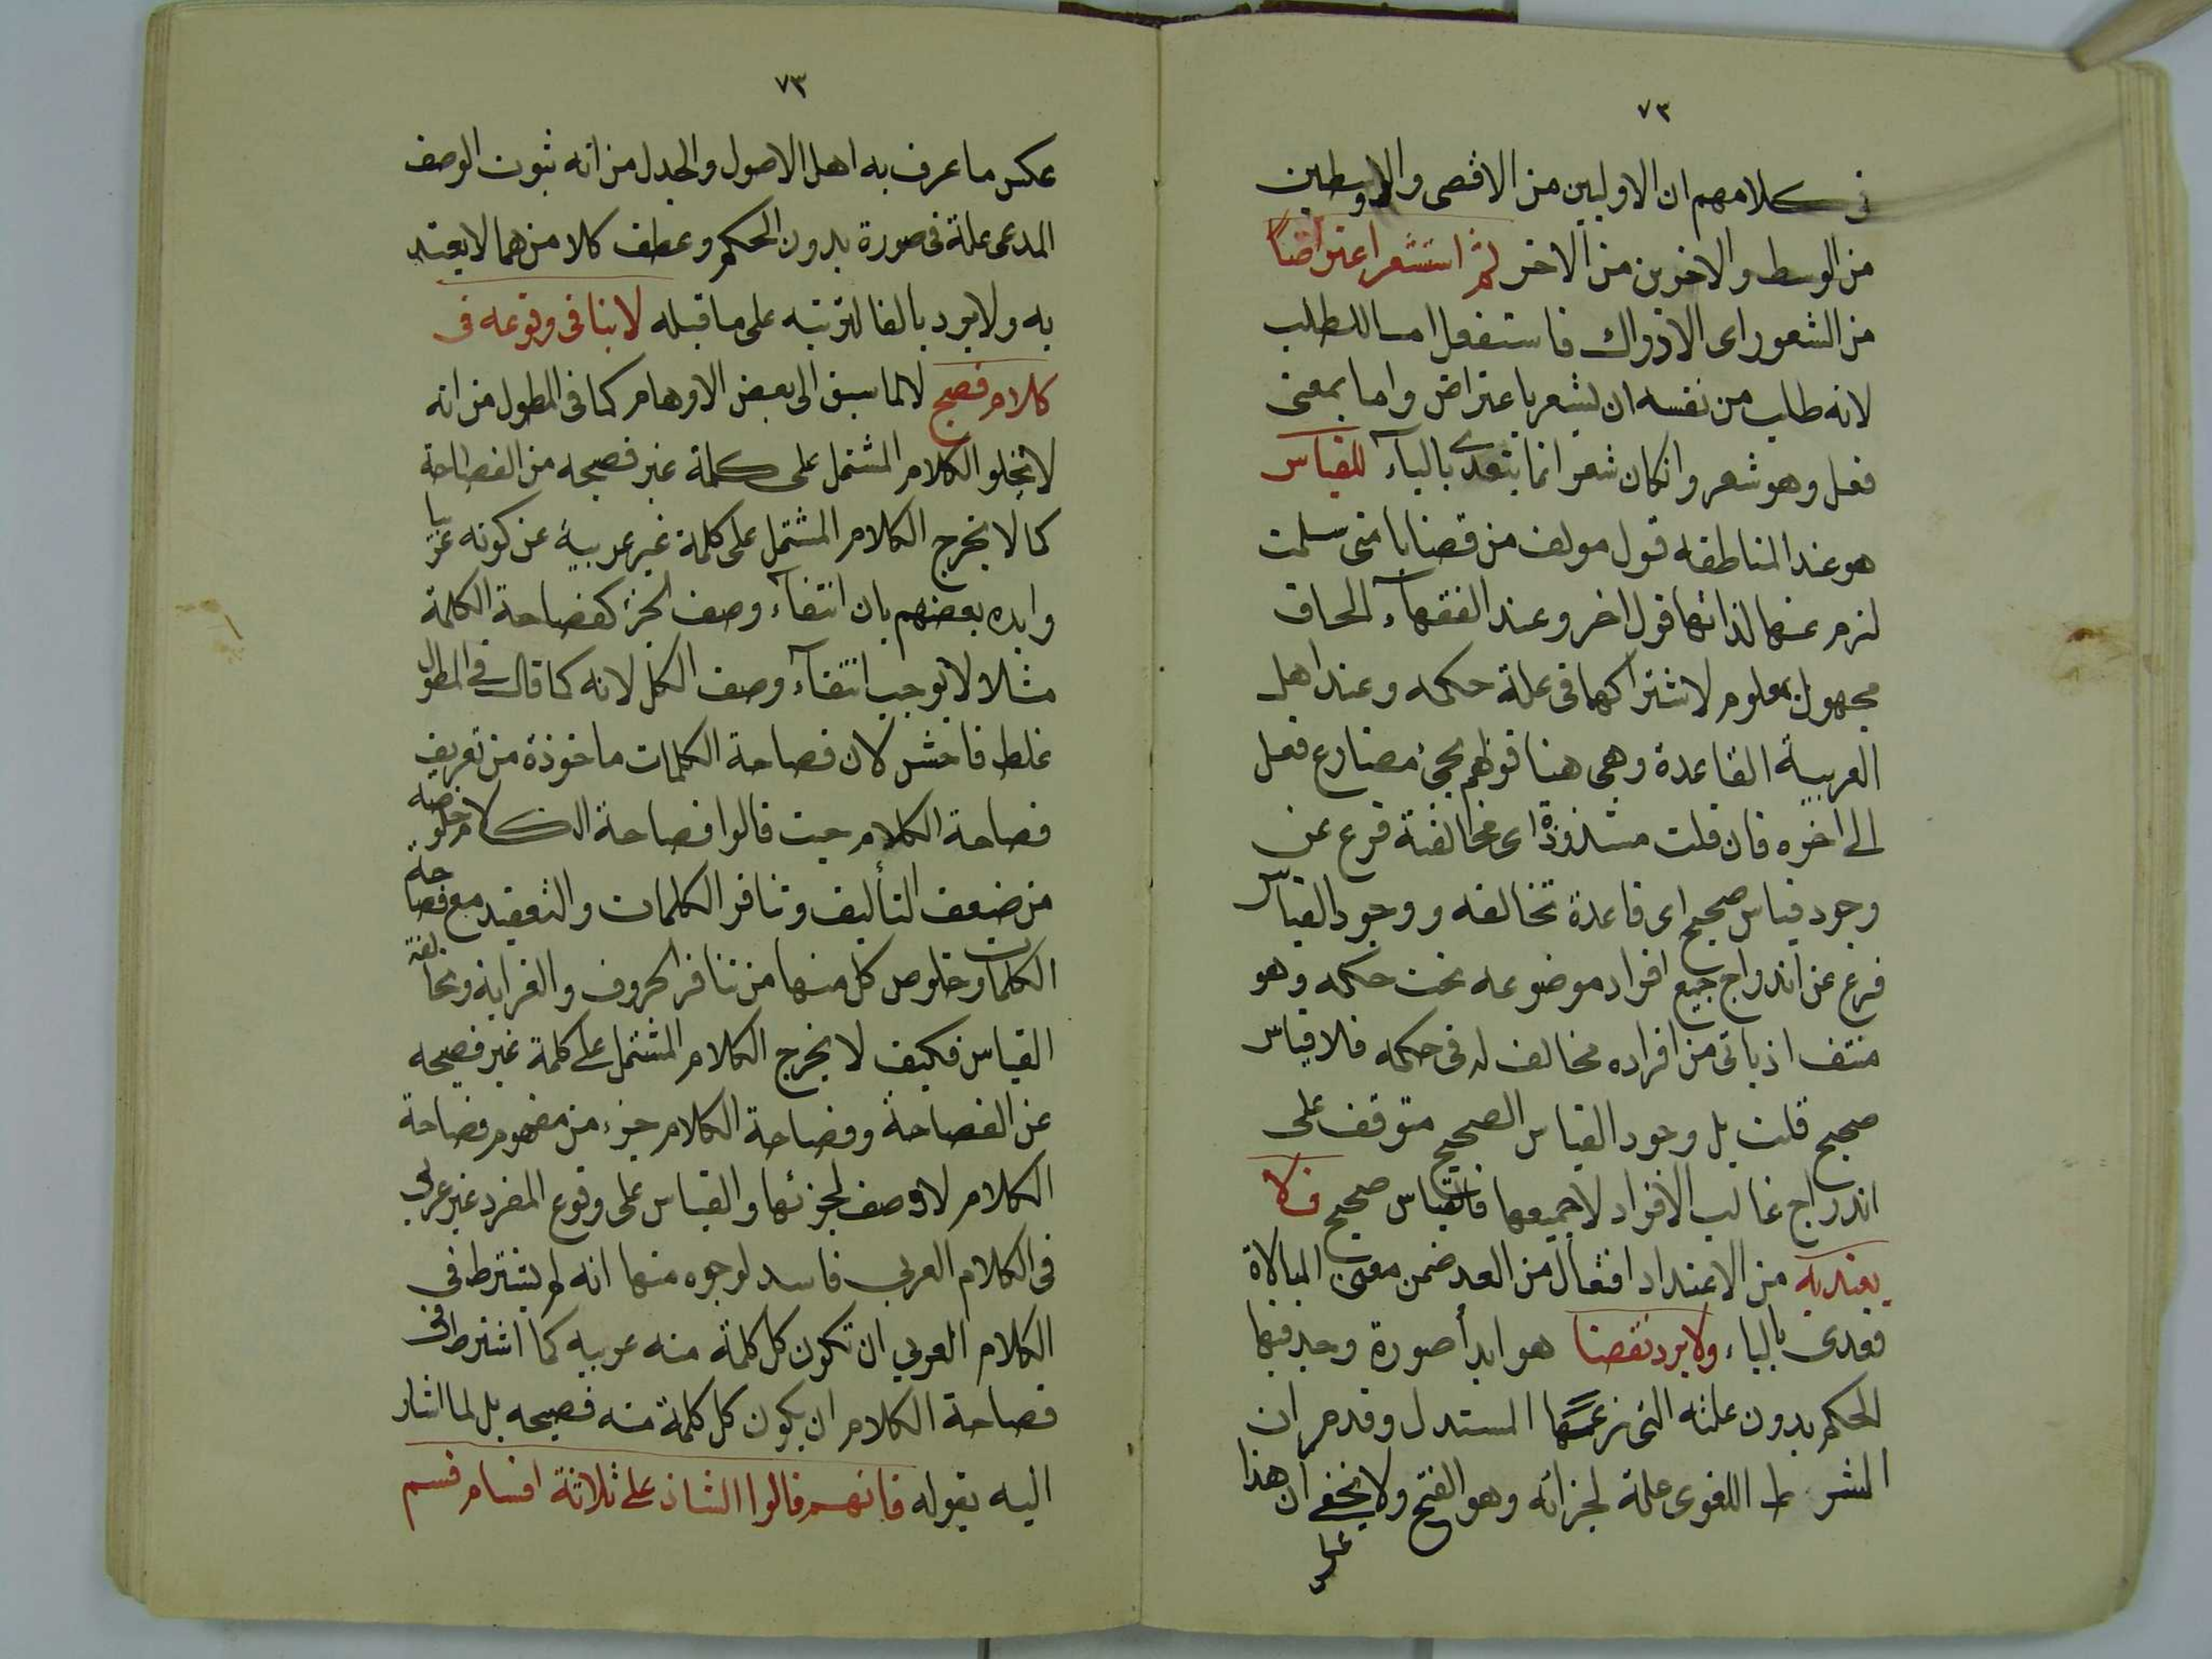 ٧٣
فى كلامهم ان الاوليين من الاقصى والاوسطين
من الوسط والاخرين من الاخر ثم استشعر اعتراضاً
من الشعور اى الادراك فاستفعل اما للطلب
لانه طالب من نفسه ان يشعر باعتراض واما بمعنى
فعل وهو شعر وانكان شعر انما يتعدى بالباء للقياس
هو عند المناطقه قول مولف من قضايا متى سلمت
لزم عنها لذاتها قول اخر وعند الفقهاء الحاق
مجهول بمعلوم لاشتراكهما فى علة حكمه وعند اهل
العربية القاعدة وهى هنا قولهم يجئ مضارع فعل
الى اخره فان قلت شذوذه اى مخالفته فرع عن
وجود قياس صحيح اى قاعدة تخالفه ووجود القياس
فرع عن اندراج جميع افراد موضوعه تحت حكمه وهو
منتف اذ ياتى من افراده مخالف له فى حكمه فلا قياس
صحيح قلت بل وجود القياس الصحيح متوقف على
اندراج غالب الافراد لا جميعها فالقياس صحيح فلا
يعتد به من الاعتداد افتعال من العد ضمن معنى المبالاة
فعدى بالباء ولا يرد نقضا هو ابدأ صورة وجد فيها
الحكم بدون علته التى زعمها المستدل وقد مر ان
الشرط اللغوى علة لجزائه وهو الفتح ولا يخفى ان هذا
عكس
٧٣
عكس ما عرف به اهل الاصول والجدل من انه ثبوت الوصف
المدعى علة فى صورة بدون الحكم وعطف كلا من هما لا يعتد
به ولا يرد بالفا لترتبه على ما قبله لا ينافى وقوعه فى
كلام فصيح لا لما سبق الى بعض الاوهام كما فى المطول من انه
لا يخلو الكلام المشتمل على كلمة غير فصيحه من الفصاحة
كما لا يخرج الكلام المشتمل على كلمة غير عربية عن كونه عربيا
وايده بعضهم بان انتفاء وصف الجزء كفصاحة الكلمة
مثلا لا يوجب انتفاء وصف الكل لانه كما قال فى المطول
غلط فاحش لان فصاحة الكلمات ماخوذة من تعريف
فصاحة الكلام حيث قالوا فصاحة الكلام خلوصه
من ضعف التأليف وتنافر الكلمات والتعقيد مع فصاحة
الكلمات وخلوص كل منها من تنافر الحروف والغرابه ومخالفة
القياس فكيف لا يخرج الكلام المشتمل على كلمة غير فصيحه
عن الفصاحة وفصاحة الكلام جزء من مفهوم فصاحة
الكلام لا وصف لجزئها والقياس على وقوع المفرد غير عربى
فى الكلام العربي فاسد لوجوه منها انه لم يشترط فى
الكلام العربي ان تكون كل كلمة منه عربيه كما اشترط فى
فصاحة الكلام ان يكون كل كلمة منه فصيحه بل لما اشار
اليه بقوله فانهم قالوا الشاذ على ثلاثة اقسام قسم